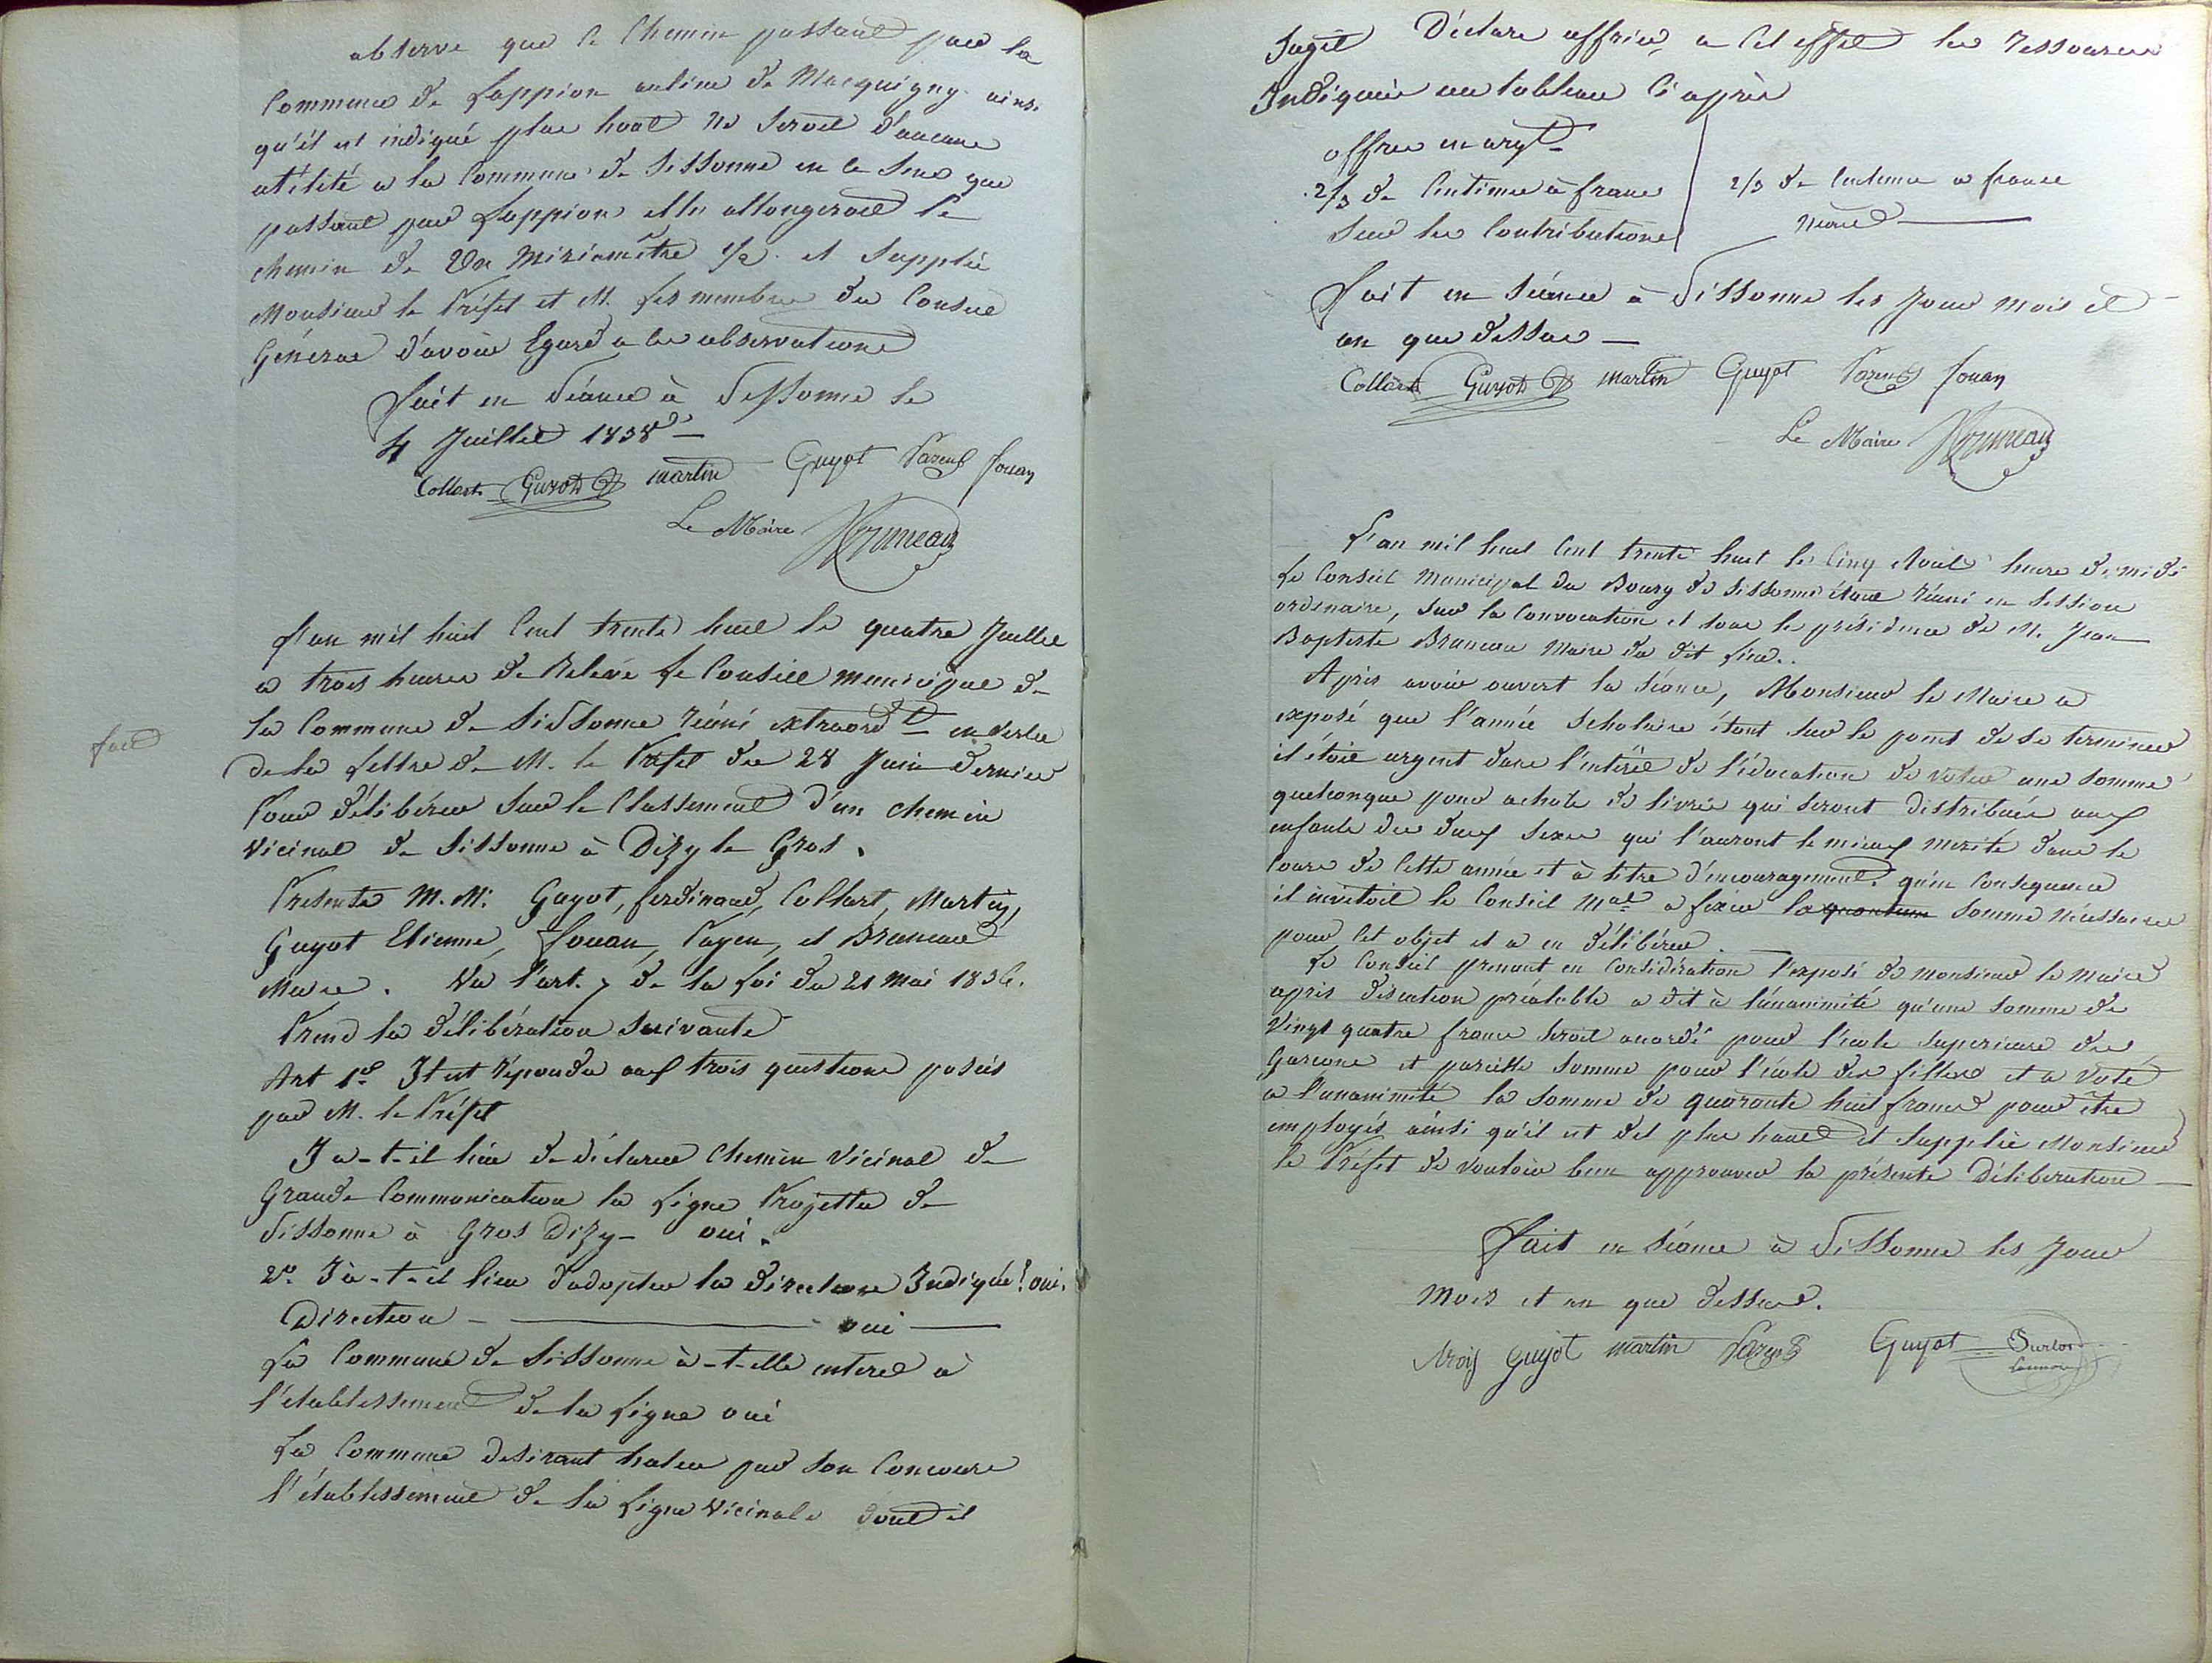 observe que le Chemin passant par la
Commune de Lappion aulieu de Macquigny ainsi
qu'il est indiqué plus haut ne seroit d'aucune
utilité a la Commune de Sissonne en ce sens que
passant par Lappion elle allongeroit le
chemin de Un Miriamètre 1/2. et supplie
Monsieur le Préfet et M. Les membres du Conseil
Général d'avoir Egard a ces observations
Fait en Séance à Sissonne le
4 Juillet 1838 —
Collart Guyot martin Guyot Payen Jouan
Le Maire Bruneau
L'an mil huit Cent trente huit le quatre Juillet
a trois heures de Relevé Le Conseil municipal de
la Commune de Sissonne réuni extraord.t en vertu
de la Lettre de M. le Préfet du 28 Juin dernier
Pour délibérer sur le Classement d'un chemin
Vicinal de Sissonne à Dizy le Gros.
Présents M.M. Guyot, ferdinand, Collart, Martin,
Guyot Etienne, Jouan, Payen, et Bruneau
Maire. Vu l'art. 7 de la Loi du 21 Mai 1836.
Prend la délibération suivante
Art 1.er Il est répondu aux trois questions posées
par M. le Préfet
I a-t-il lieu de déclarer Chemin Vicinal de
Grande Communication la Ligne Projettée de
Sissonne à Gros Dizy - oui.
2.o I a-t-il lieu d'adopter la direction Indiquée? oui.
Direction — oui —
La Commune de Sissonne à-t-elle interet à
l'établissement de la Ligne oui
La Commune desirant hater par son Concours
l'établissement de la Ligne Vicinale dont il
Sagit Déclare offrir a Cet effet les ressources
Indiquées au tableau Ci après
offres en argt
2/3 de Centimes à franc
Sur les Contributions
2/3 de Centime a france
Fait en Séance à Sissonne les Jour mois et
an que dessus —
Collart Guyot martin Guyot Payen Jouan
Le Maire Bruneau
L'an mil huit Cent trente huit le Cinq Aout heure de midi
Le Conseil Municipal du Bourg de Sissonne étant réuni en Session
ordinaire, sur la Convocation et sous la présidence de M. Jean
Baptiste Bruneau Maire du dit Lieu.
Après avoir ouvert la séance, Monsieur le Maire a
exposé que l'année Scholaire étant sur le point de se terminer
il étoit urgent dans l'intérêt de l'éducation de voter une somme
quelconque pour achats de livres qui seront distribués aux
enfants des deux sexes qui l'auront le mieux mérité dans le
Cours de Cette année et à titre d'encouragement. qu'en Consequence
il invitoit le Conseil M.al a fixer la quantum somme nécessaire
pour Cet objet et a en délibérer.
Le Conseil prenant en Considération l'exposé de monsieur le Maire
après discution préalable a dit à l'unanimité qu'une somme de
Vingt quatre francs seroit acordé pour l'école superieure des
Garcons et pareille somme pour l'école des filles et a voté
a l'unanimité la somme de quarante huit francs pour être
employés ainsi qu'il est dit plus haut et supplie Monsieur
le Préfet de vouloir bien approuver la présente Délibération —
Fait en Séance à Sissonne les Jour
Mois et an que dessus.
Guyot martin Payen Guyot